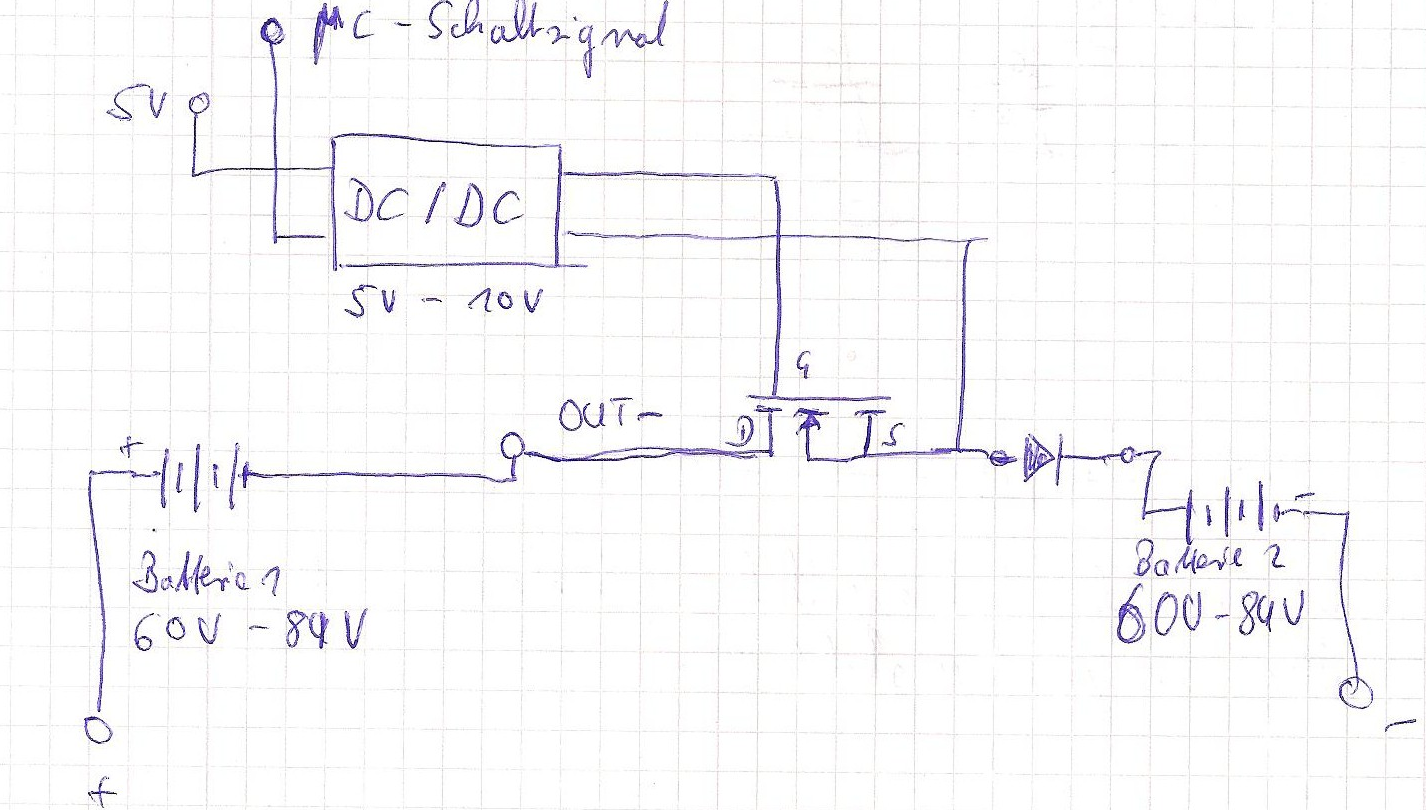 µC - Schaltsignal
5V
DC / DC
5V - 10V
G
OUT-
D
S
+
-
Batterie 1
60V - 84V
Batterie 2
60V - 84V
-
+